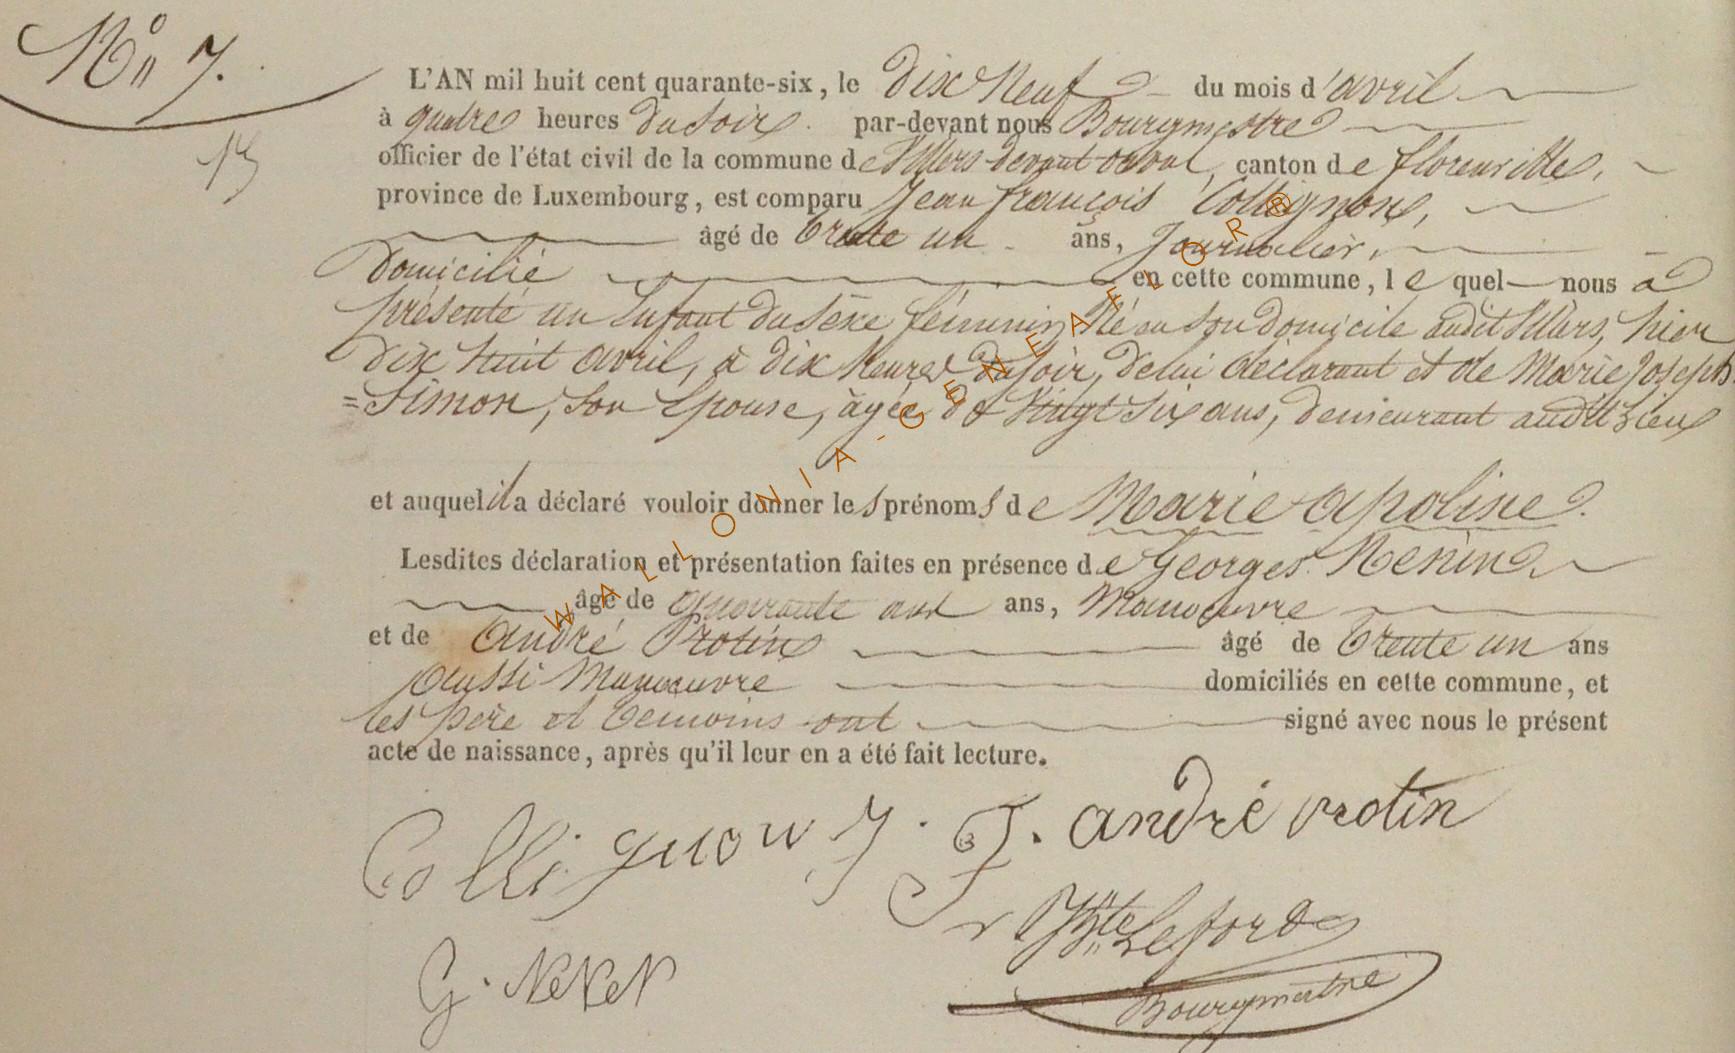 N° 7.
13
L'AN mil huit cent quarante-six, le dix Neuf du mois d'avril
à quatre heures du Soir. par-devant nous Bourgmestre
officier de l'état civil de la commune de Villers devant orval, canton de florenville,
province de Luxembourg, est comparu Jean françois Collignon,
âgé de trente un ans, Journalier,
Domicilié en cette commune, le quel nous a
présenté un Enfant du Sexe féminin, Né en Son domicile audit Villers, hier
dix huit avril, à dix heures du soir, de lui déclarant et de Marie Joseph
=Simon, Son Epouse, âgée de Vingt Six ans, demeurant audit Lieu
et auquel il a déclaré vouloir donner les prénoms de Marie apoline.
Lesdites déclaration et présentation faites en présence de Georges
âgé de quarante ans, Manoeuvre
et de André Protin âgé de trente un ans
aussi Manoeuvre domiciliés en cette commune, et
les père et témoins ont signé avec nous le présent
acte de naissance, après qu'il leur en a été fait lecture.
Collignon J. f. andré protin
Lefort
G.
Bourgmestre
WALLONIA-GENEAFLOR®